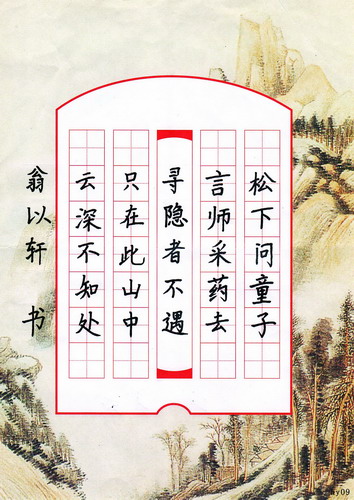 松下问童子
言师采药去
寻隐者不遇
只在此山中
云深不知处
翁以轩 书